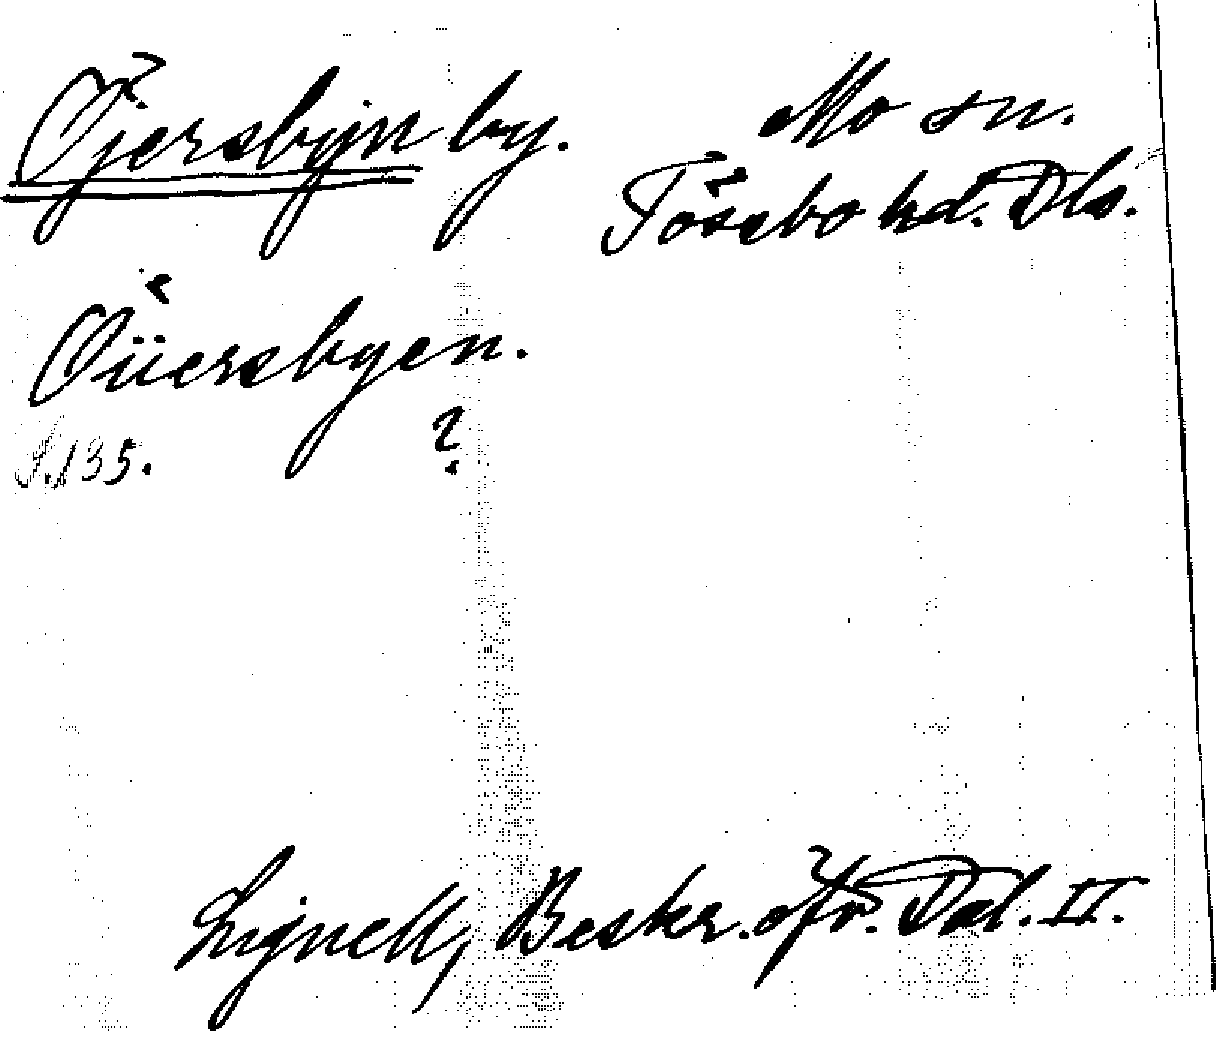 Öjersbyn by. Mo sn.
Tössbo hd. Dls.
Öijersbyen.
S. 135. ?
Lignell, Beskr. öfr. Dal. II.